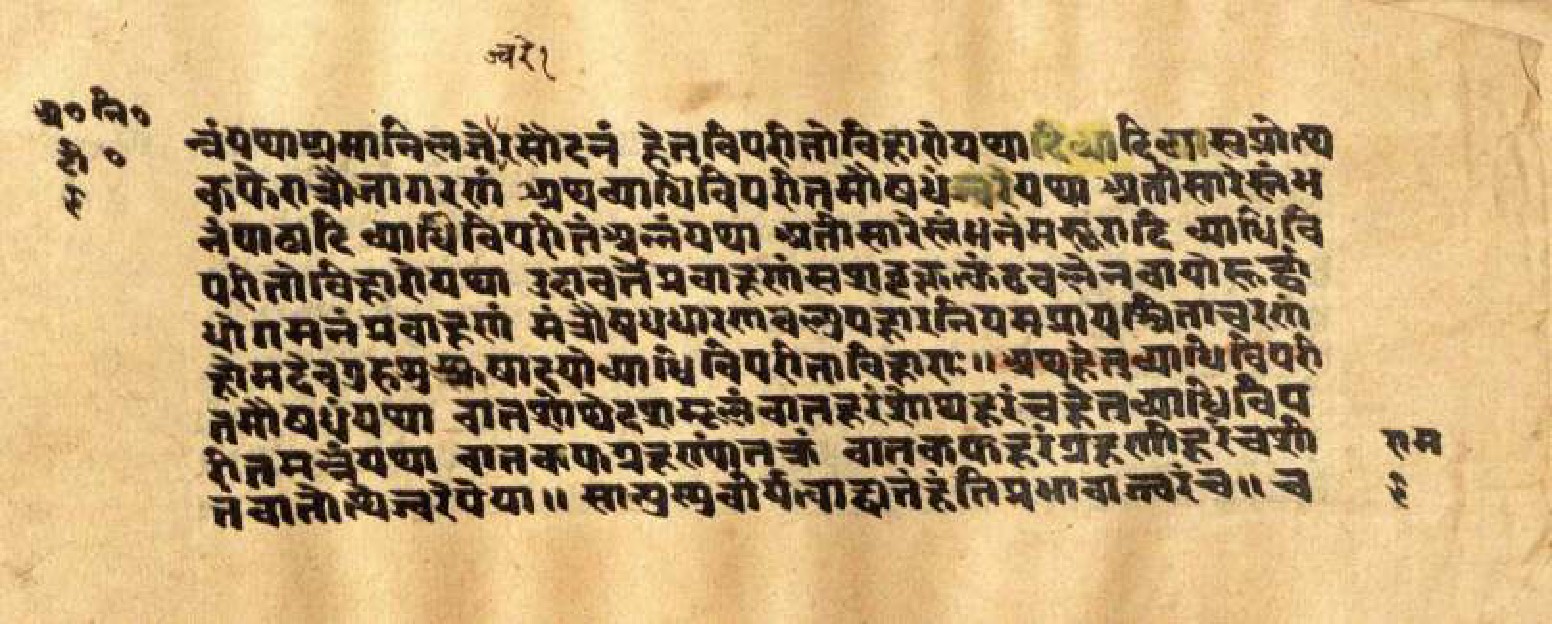 ज्वरे१
अ० नि०
टी ०
न्नंयथाश्रमानिलजेरसौदनं हेतुविपरीतोविहारोयथादिवादि स्वप्नोत्थ
कफेरात्रौजागरणं अथव्याधिविपरीतमौषधंज्वरेयथा अतीसारेस्तंभ
नंपाठादि व्याधिविपरीतंअन्नंयथा अतीसारेस्तंभनंमसूरादि व्याधिवि
परीतोविहारोयथा उदावर्तेप्रवाहणं वायो
धोगमनंप्रवाहणं मंत्रौषधधारणबल्युपहारनियमप्रायश्चिताचरणं
होमदेवगुरुशुश्रूषादयोव्याधिविपरीताविहाराः॥ अथहेतुव्याधिविपरी
तमौषधंयथा वातशोथेदशमूलंवातहरंशोथहरंचहेतुव्याधिविप
रीतमन्नंयथा वातकफग्रहण्यांतक्रं वातकफहरंग्रहणीहरंचशी
तवातोत्थेज्वरेपेया॥ साप्युस्पवीर्यत्वाद्वातंहंतिप्रभावाज्ज्वरंच॥ च
राम